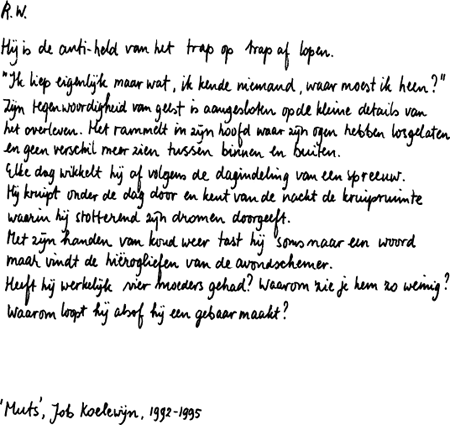 R.W.
Hij is de anti-held van het trap op trap af lopen.
"Ik liep eigenlijk maar wat, ik kende niemand, waar moest ik heen?"
Zijn tegenwoordigheid van geest is aangesloten op de kleine details van
het overleven. Het rammelt in zijn hoofd waar zijn ogen hebben losgelaten
en geen verschil meer zien tussen binnen en buiten.
Elke dag wikkelt hij af volgens de dagindeling van een spreeuw.
Hij kruipt onder de dag door en kent van de nacht de kruipruimte
waarin hij stotterend zijn dromen doorgeeft.
Met zijn handen van koud weer tast hij soms maar een woord
maar vindt de hiërogliefen van de avondschemer.
Heeft hij werkelijk vier moeders gehad? Waarom zie je hem zo weinig?
Waarom loopt hij alsof hij een gebaar maakt?
'Muts', Job Koelewijn, 1992-1995